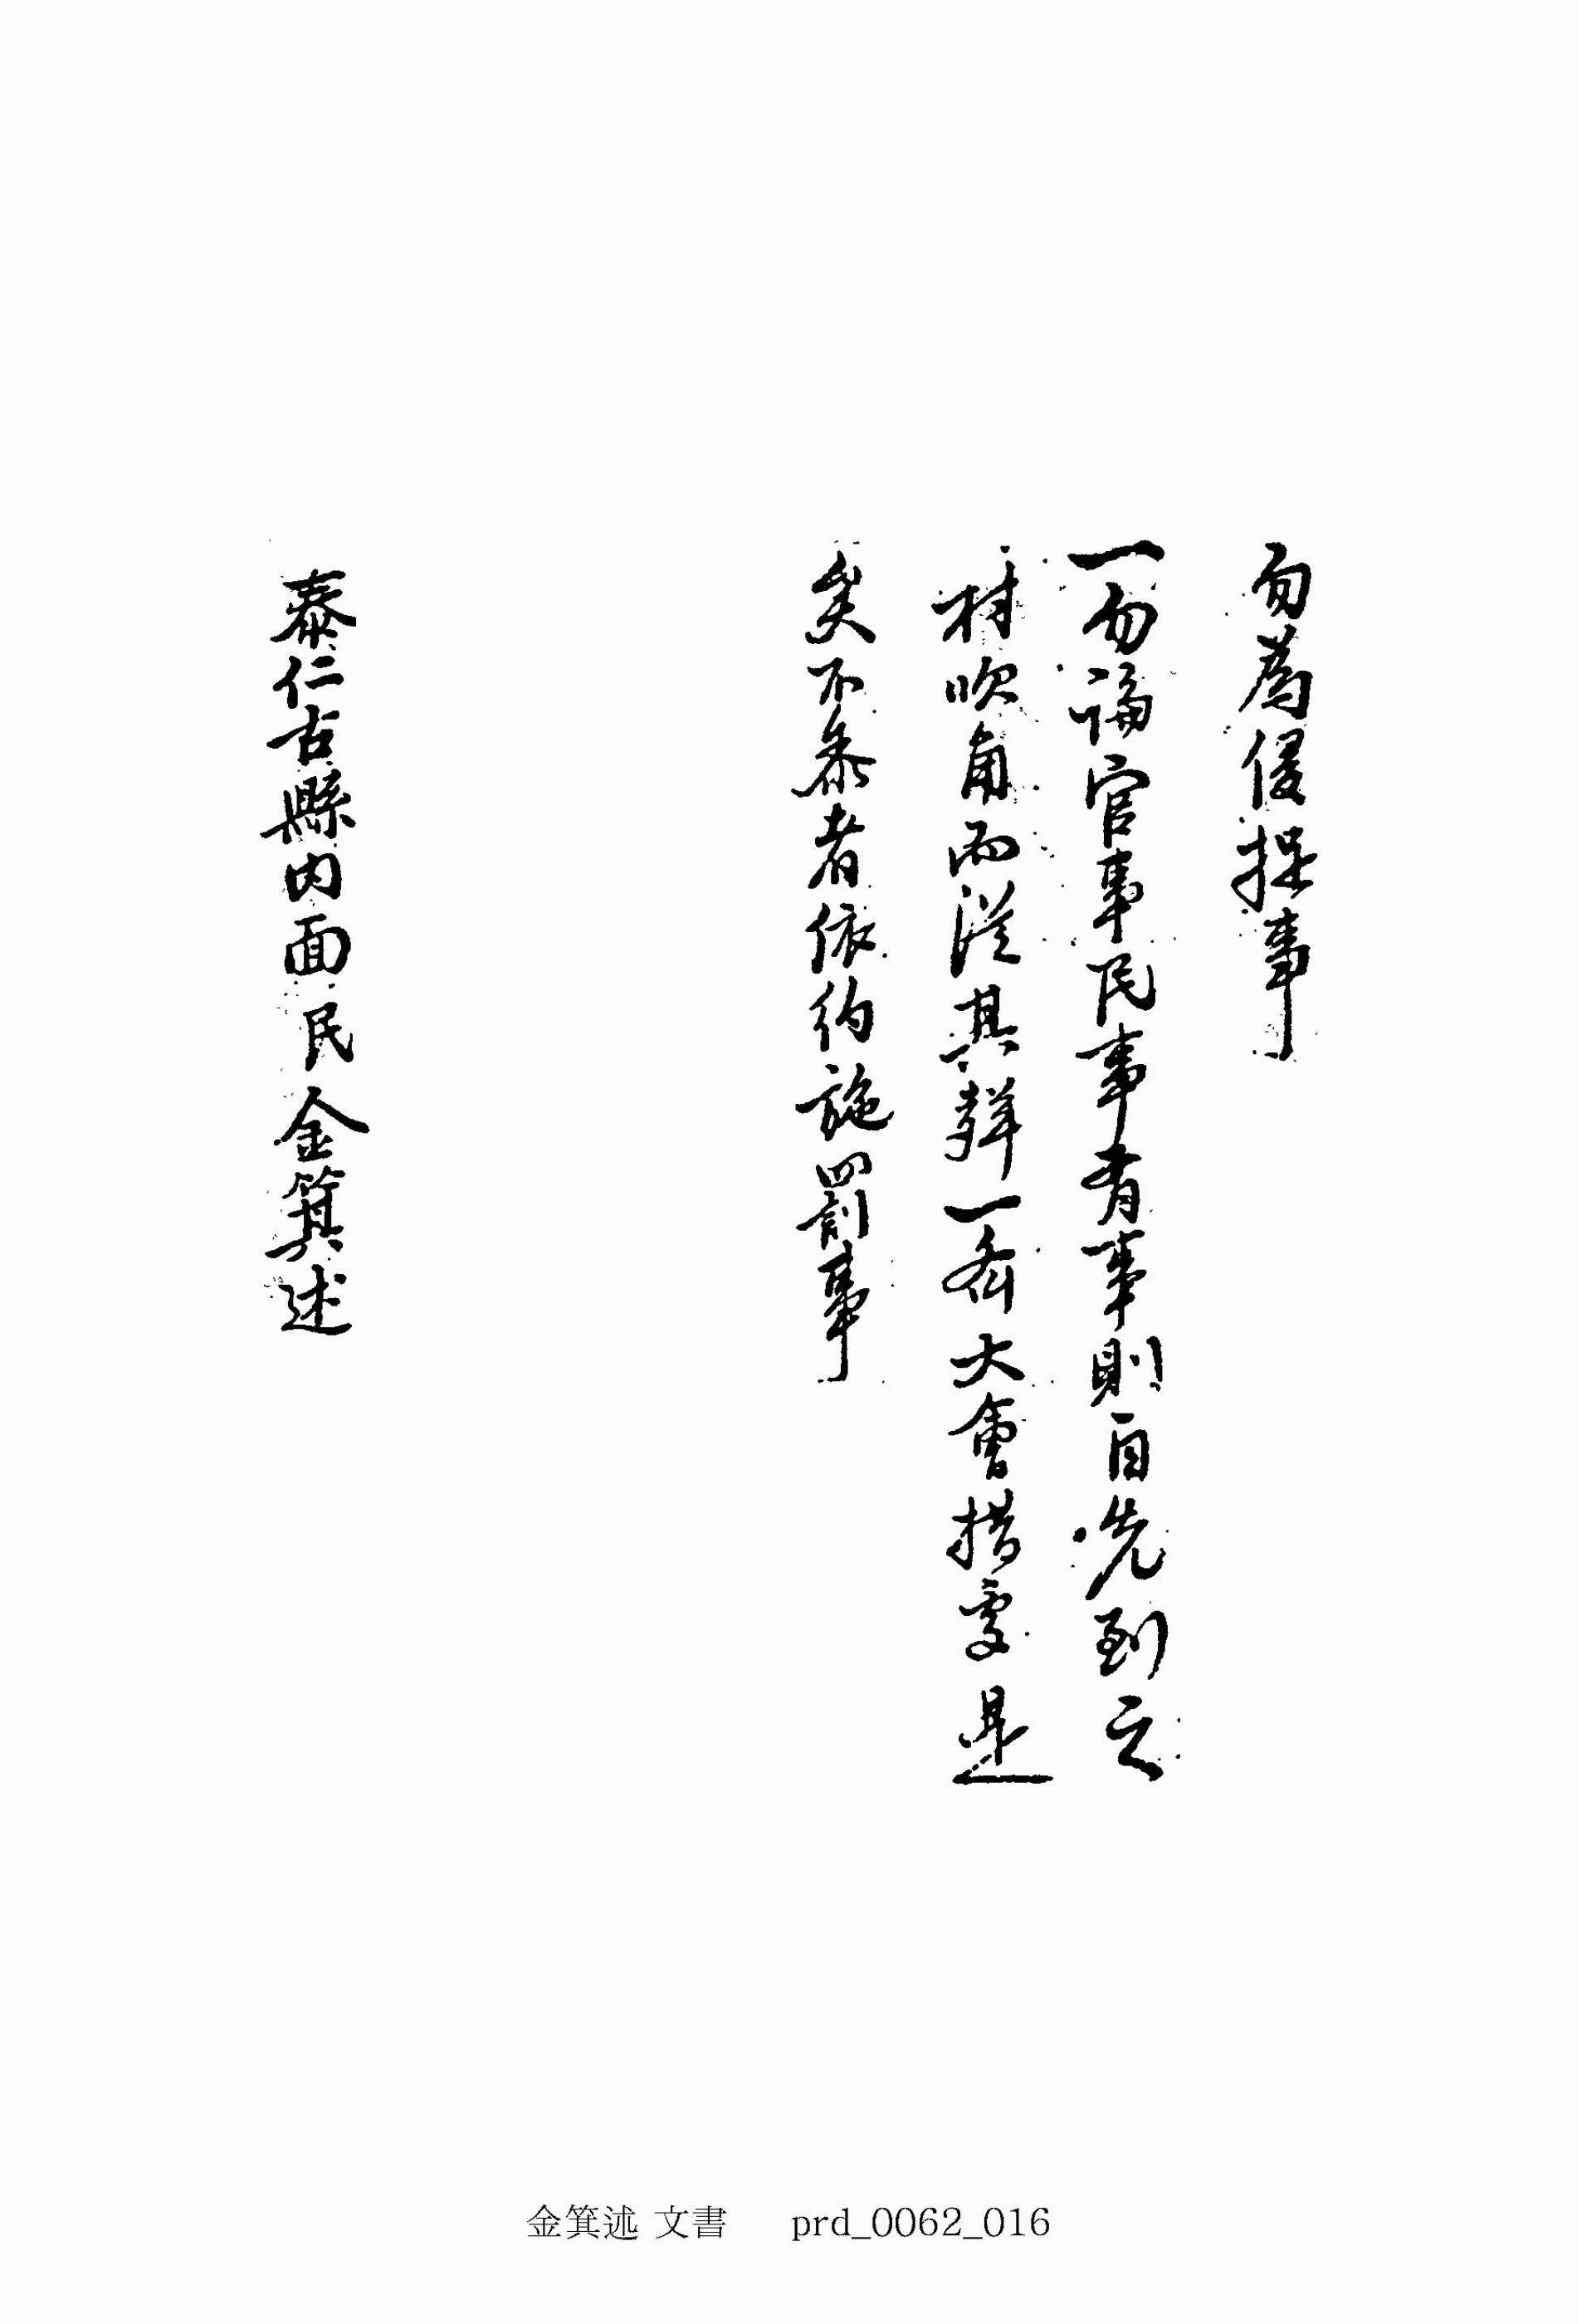 勿爲侵捉事
一勿論官事民事有事則自先到之
村吹角而從其聲一齊大會措處是
矣不參者依約施罰事
泰仁古縣內面民金箕述
金箕述 文書 prd_0062_016